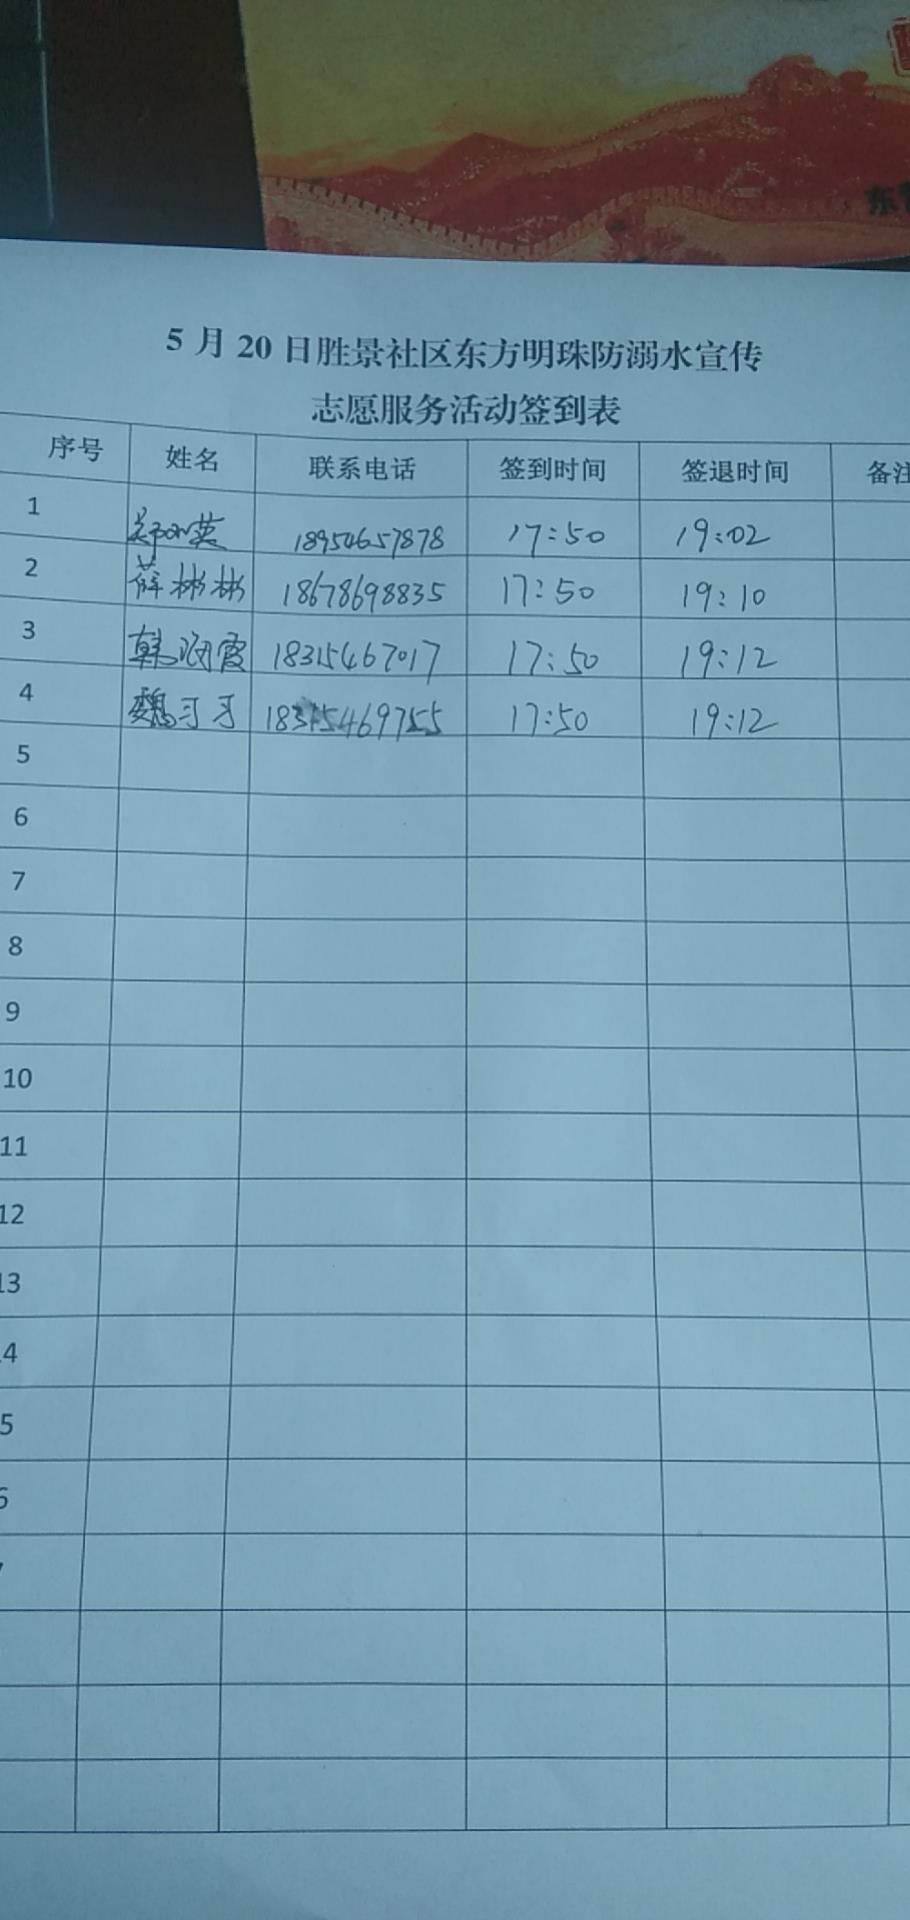 东
5月20日胜景社区东方明珠防溺水宣传
志愿服务活动签到表
序号 姓名 联系电话 签到时间 签退时间 备注
1 18954657878 17:50 19:02
2 薛彬彬 18678698835 17:50 19:10
3 韩 霞 18315467017 17:50 19:12
4 魏 18315469755 17:50 19:12
5
6
7
8
9
10
11
12
13
4
5
6